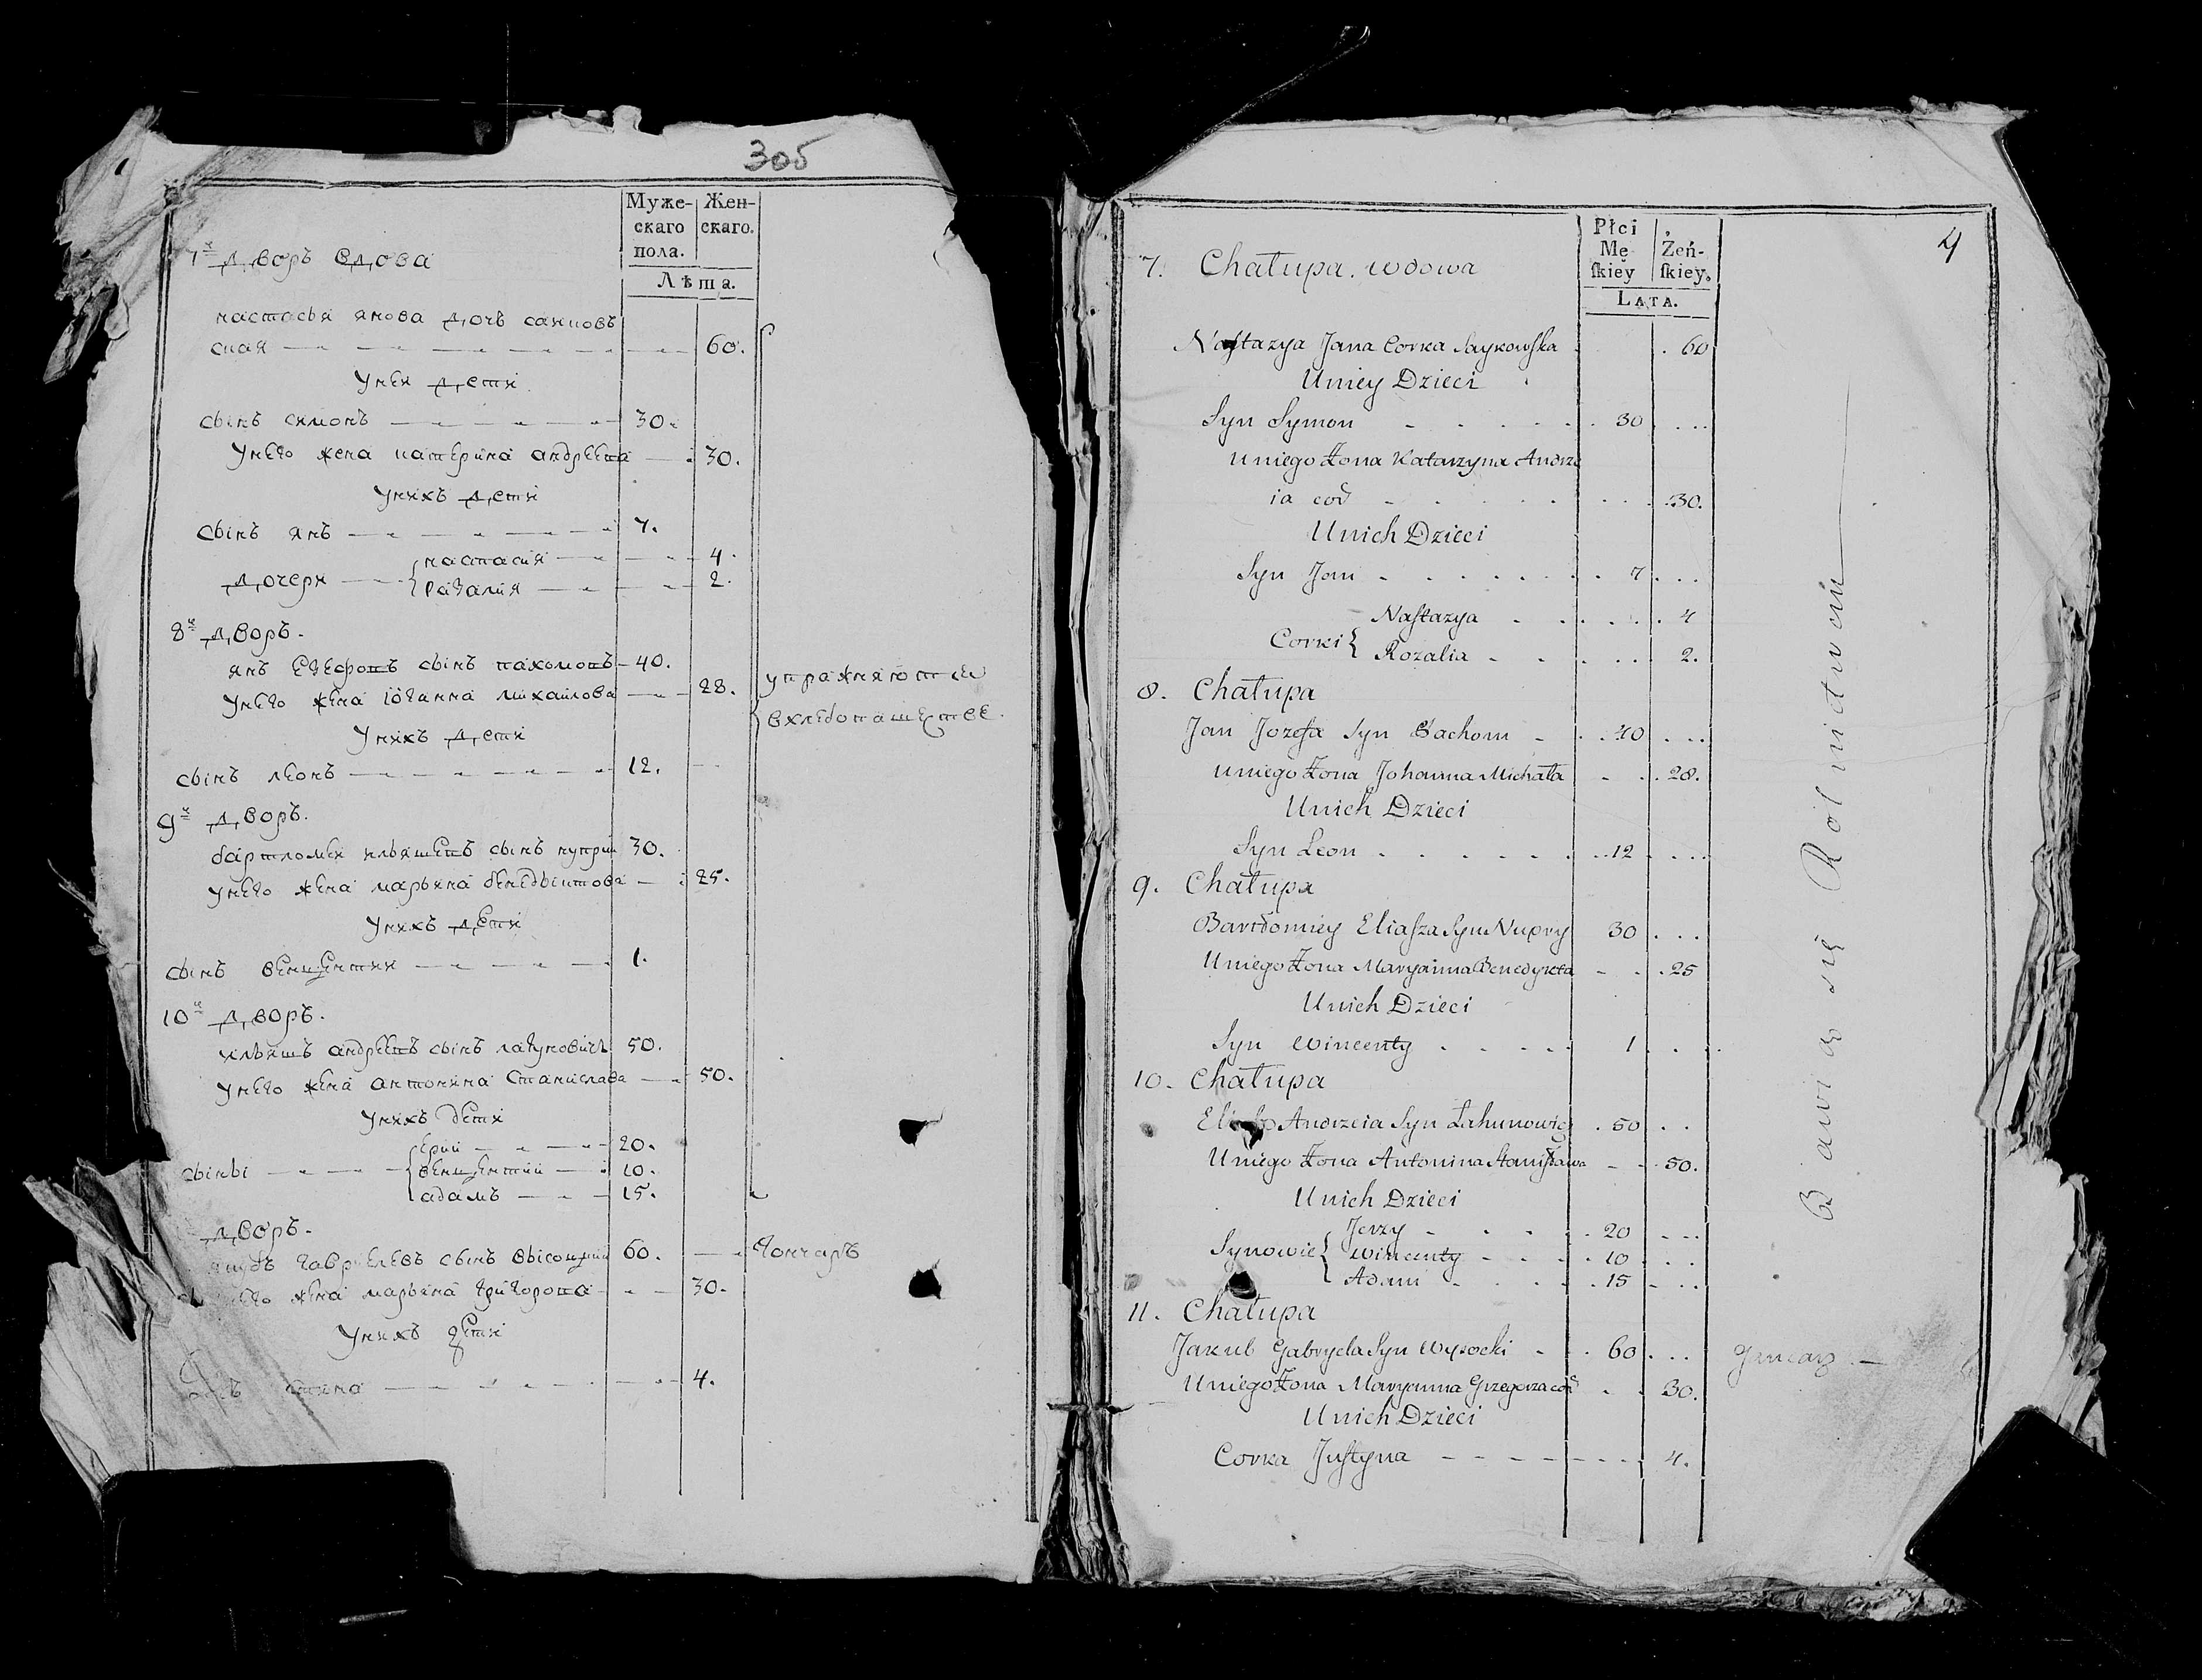 3об
Муже- Жен-
скаго скаго.
пола.
Лѣта.
7й дворъ вдова
настасья янова дочь саиковъ
ская 60.
Унея дети
сынъ симонъ 30.
Унего жена катерина андреева 30.
Унихъ дети
сынъ янъ 7.
дочери настасия 4.
разалия 2.
8й дворъ.
янъ езефовъ сынъ пахомовъ 40.
Унего жена юганна михаилова 28.
упражняются
вхлебопашестве.
Унихъ дети
сынъ леонъ 12.
9й дворъ.
бартломеи ильяшевъ сынъ нуприи 30.
Унего жена марьяна бенедыктова 25.
Унихъ дети
сынъ венцентии 1.
10й дворъ.
ильяшъ андреевъ сынъ лагуновичъ 50.
Унего жена антонина станислава 50.
Унихъ дети
ерии 20.
сыны венцентии 10.
адамъ 15.
дворъ.
гаврелевъ сынъ высоцкии 60. гончаръ
жена марьяна григорова 30.
Унихъ дети
4.
4
Płci
Mę- Żeń-
ſkiey ſkiey.
LATA.
7. Chałupa. wdowa
Naſtazya Jana Corka Saykowſka 60
Uniey Dzieci
Syn Symon 30
Uniego Żona Katarzyna Andrze
ia cor 30.
Unich Dzieci
Syn Jan 7
Naſtazya 4
Corki
Rozalia 2.
8. Chałupa
Jan Jozefa Syn Pachom 40
Uniego Żona Johanna Michała 28.
Unich Dzieci
Syn Leon 12
9. Chałupa
Bartłomiey Eliaſza Syn Nupry 30
Uniego Żona Maryanna Benedykta 25
Unich Dzieci
Syn Wincenty 1
10. Chałupa
Andrzeia Syn Łahunowicz 50
Uniego Żona Antonina Staniſława 50.
Unich Dzieci
Jerzy 20
Synowie Wincenty 10
Adam 15
11. Chałupa
Jakub Gabryela Syn Wysocki 60 garncarz
Uniego Żona Maryanna Grzegorza cor 30.
Unich Dzieci
Corka Juſtyna 4.
Bawią się Rolnictwem